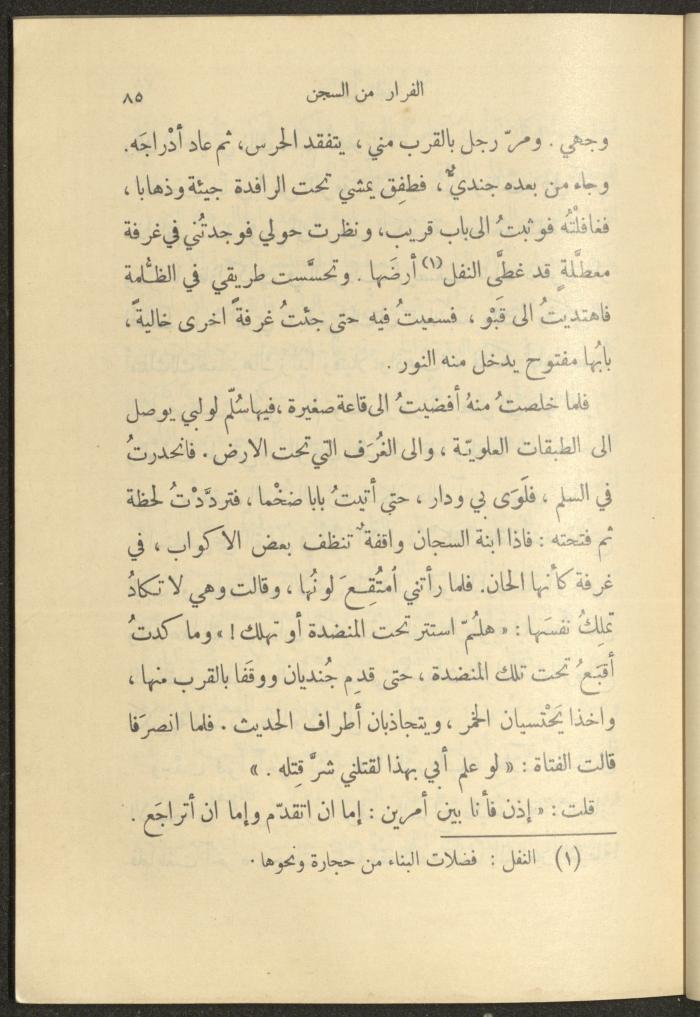 الفرار من السجن ٨٥
وجهي . ومرّ رجل بالقرب مني ، يتفقد الحرس، ثم عاد أدْراجَه.
وجاء من بعده جنديٌّ، فطفِق يمشي تحت الرافدة جيئة وذهابا ،
فغافلْتُه فوثبتُ الى باب قريب، ونظرت حولي فوجدتُني في غرفة
معطَّلةٍ قد غطَّى النفل (١) أرضَها . وتحسَّست طريقي في الظُّلمة
فاهتديتُ الى قَبْو ، فسعيتُ فيه حتى جئتُ غرفةً اخرى خاليةً ،
بابُها مفتوح يدخل منه النور .
فلما خلصتُ منهُ أفضيتُ الى قاعة صغيرة ،فيها سُلّم لولبي يوصل
الى الطبقات العلويّة ، والى الغُرَف التي تحت الارض . فانحدرتُ
في السلم ، فلَوَى بي ودار ، حتى أتيتُ بابا ضخْما ، فتردَّدْتُ لحظة
ثم فتحته : فاذا ابنة السجان واقفةٌ تنظف بعض الاكواب ، في
غرفة كأنها الحان. فلما رأتني اُمتُقِعَ لونُها ، وقالت وهي لا تكادُ
تملِكُ نفسَها : « هلُمّ استتر تحت المنضدة أو تهلك ! » وما كدتُ
أقبَعُ تحت تلك المنضدة ، حتى قدِم جُنديان ووقَفا بالقرب منها ،
واخذا يَحْتسيان الخمر ، ويتجاذبان أطراف الحديث . فلما انصرَفا
قالت الفتاة : « لو علم أبي بهذا لقتلني شرَّ قِتله . »
قلت : « إذن فأنا بين أمرين : إما ان اتقدّم وإما ان أتراجَع .
(١) النفل : فضلات البناء من حجارة ونحوها .